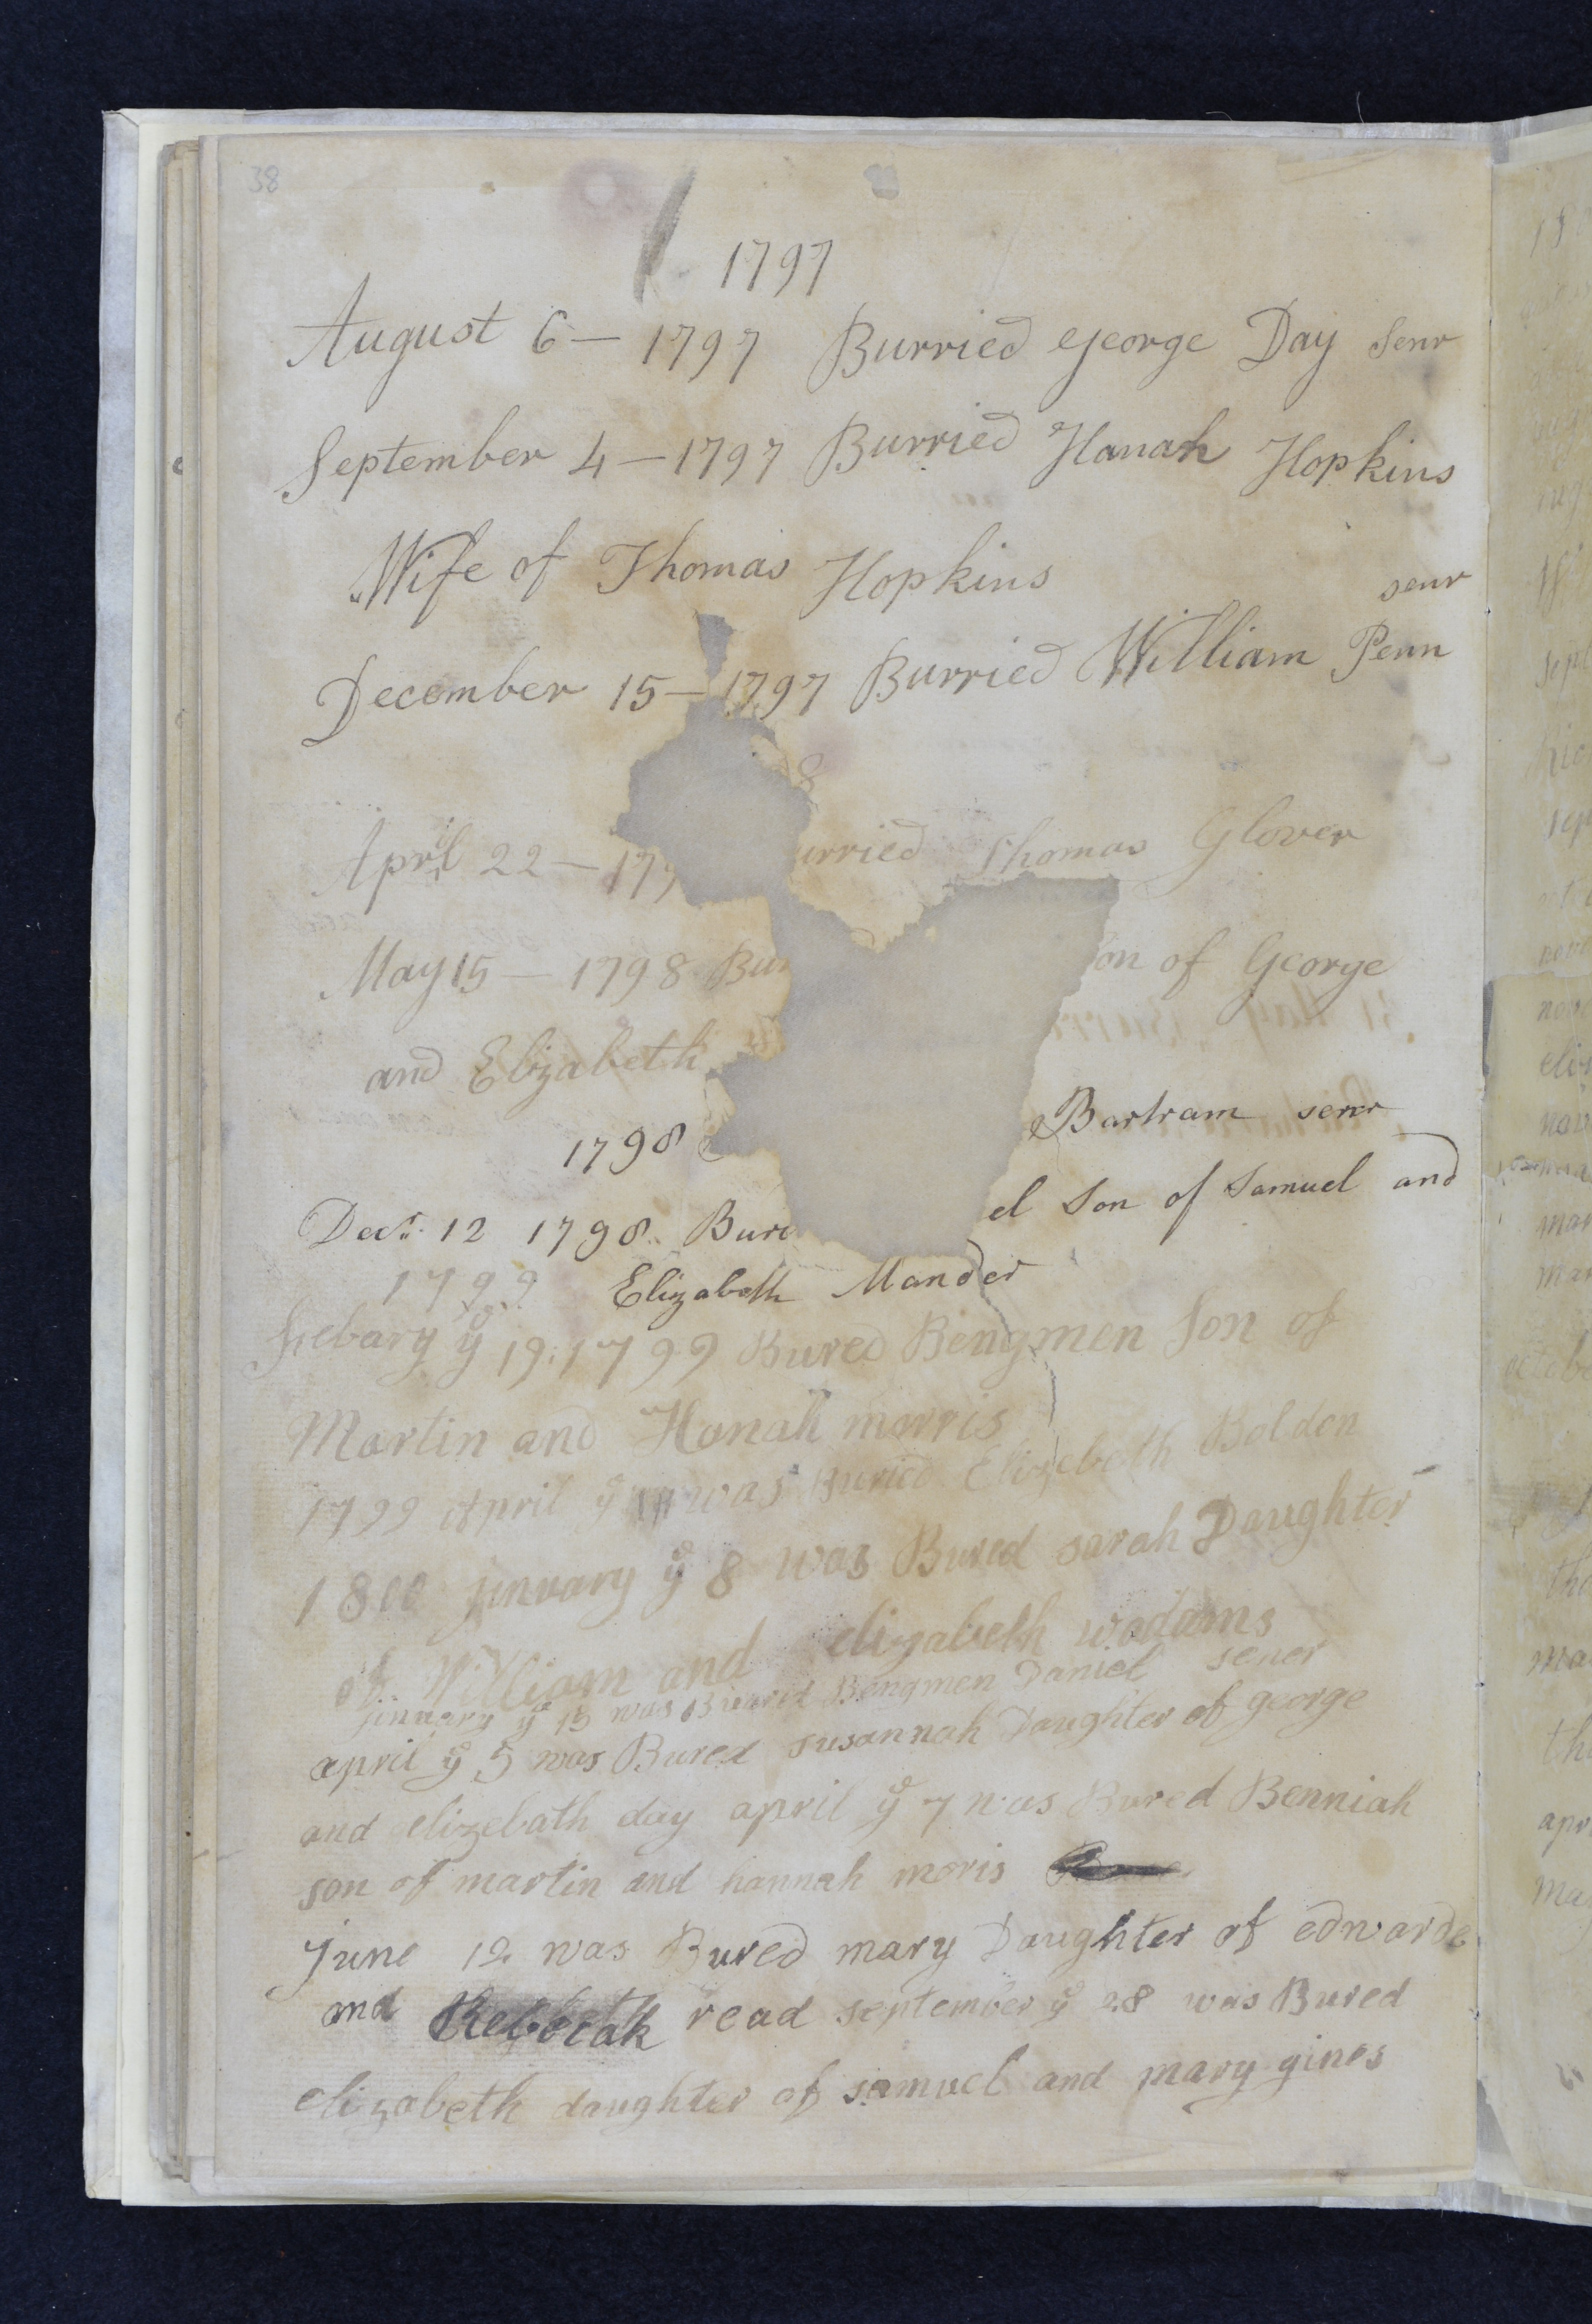 38
1797
August 6 — 1797 Burried George Day Senr
September 4 — 1797 Burried Hanah Hopkins
Wife of Thomas Hopkins
senr
December 15 — 1797 Burried William Penn
8
April 22 — 179 urried Thomas Glover
May 15 — 1798 Bur on of George
and Elizabeth
1798 Bartram senr
Decr. 12 1798. Bur el Son of Samuel and
1799 Elizabeth Mander
febary ye 19: 1799 Bured Bengmen Son of
Martin and Hanah morris
1799 April ye was Buried Elizebeth Boldon
1800 jinuary ye 8 was Bured sarah Daughter
of William and elizabeth wadams
jinuary ye 15 was Buared Bengmen Daniel sener
april ye 5 was Bured susannah Daughter of george
and elizebath day april ye 7 was Bured Benniah
son of martin and hannah moris
June 12 was Bured mary Daughter of edwarde
and Rebecah read september ye 28 was Bured
elizabeth daughter of samuel and mary gines